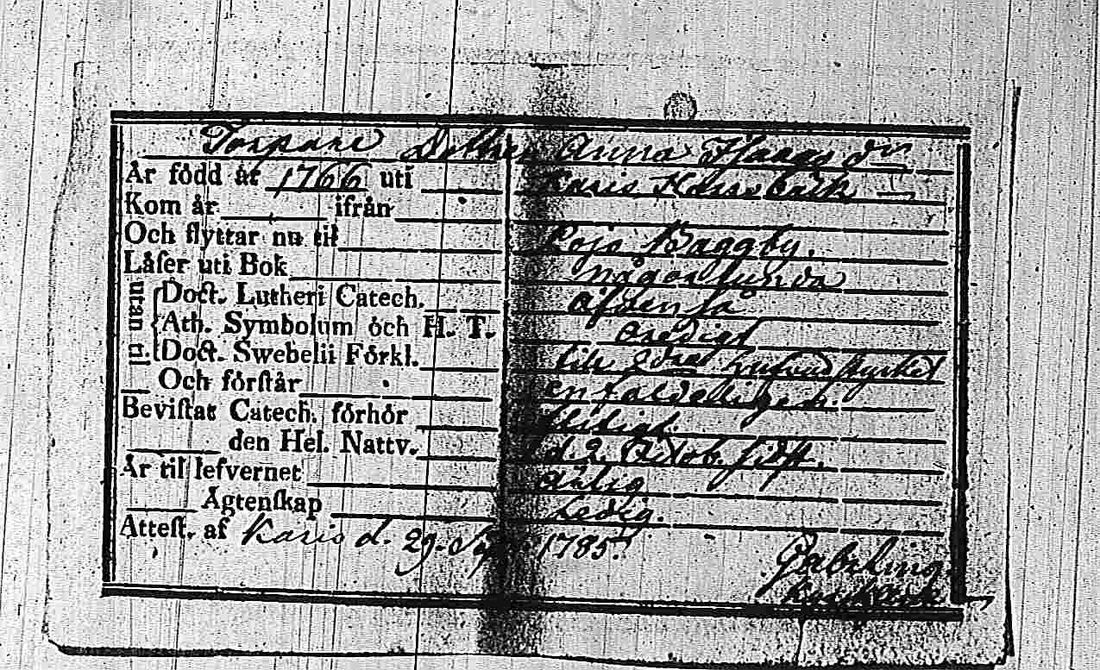 Torpare Dottren Anna Isaacs dr
År född år 1766 uti Karis Kansbäck
Kom år ifrån
Och flyttar nu til Pojo Baggby.
Låser uti Bok någorlunda
utan til. Doct. Lutheri Catech. äfven så
Ath. Symbolum och H. T. oredigt
Doct. Swebelii Förkl. till
Och förstår enfaldeligen.
Bevistat Catech. förhör flitigt
den Hel. Nattv. d. 2. Octob. sidst.
År til lefvernet ärlig
Ägtenskap Ledig.
Attest. af Karis d. 29. Sept 1785.